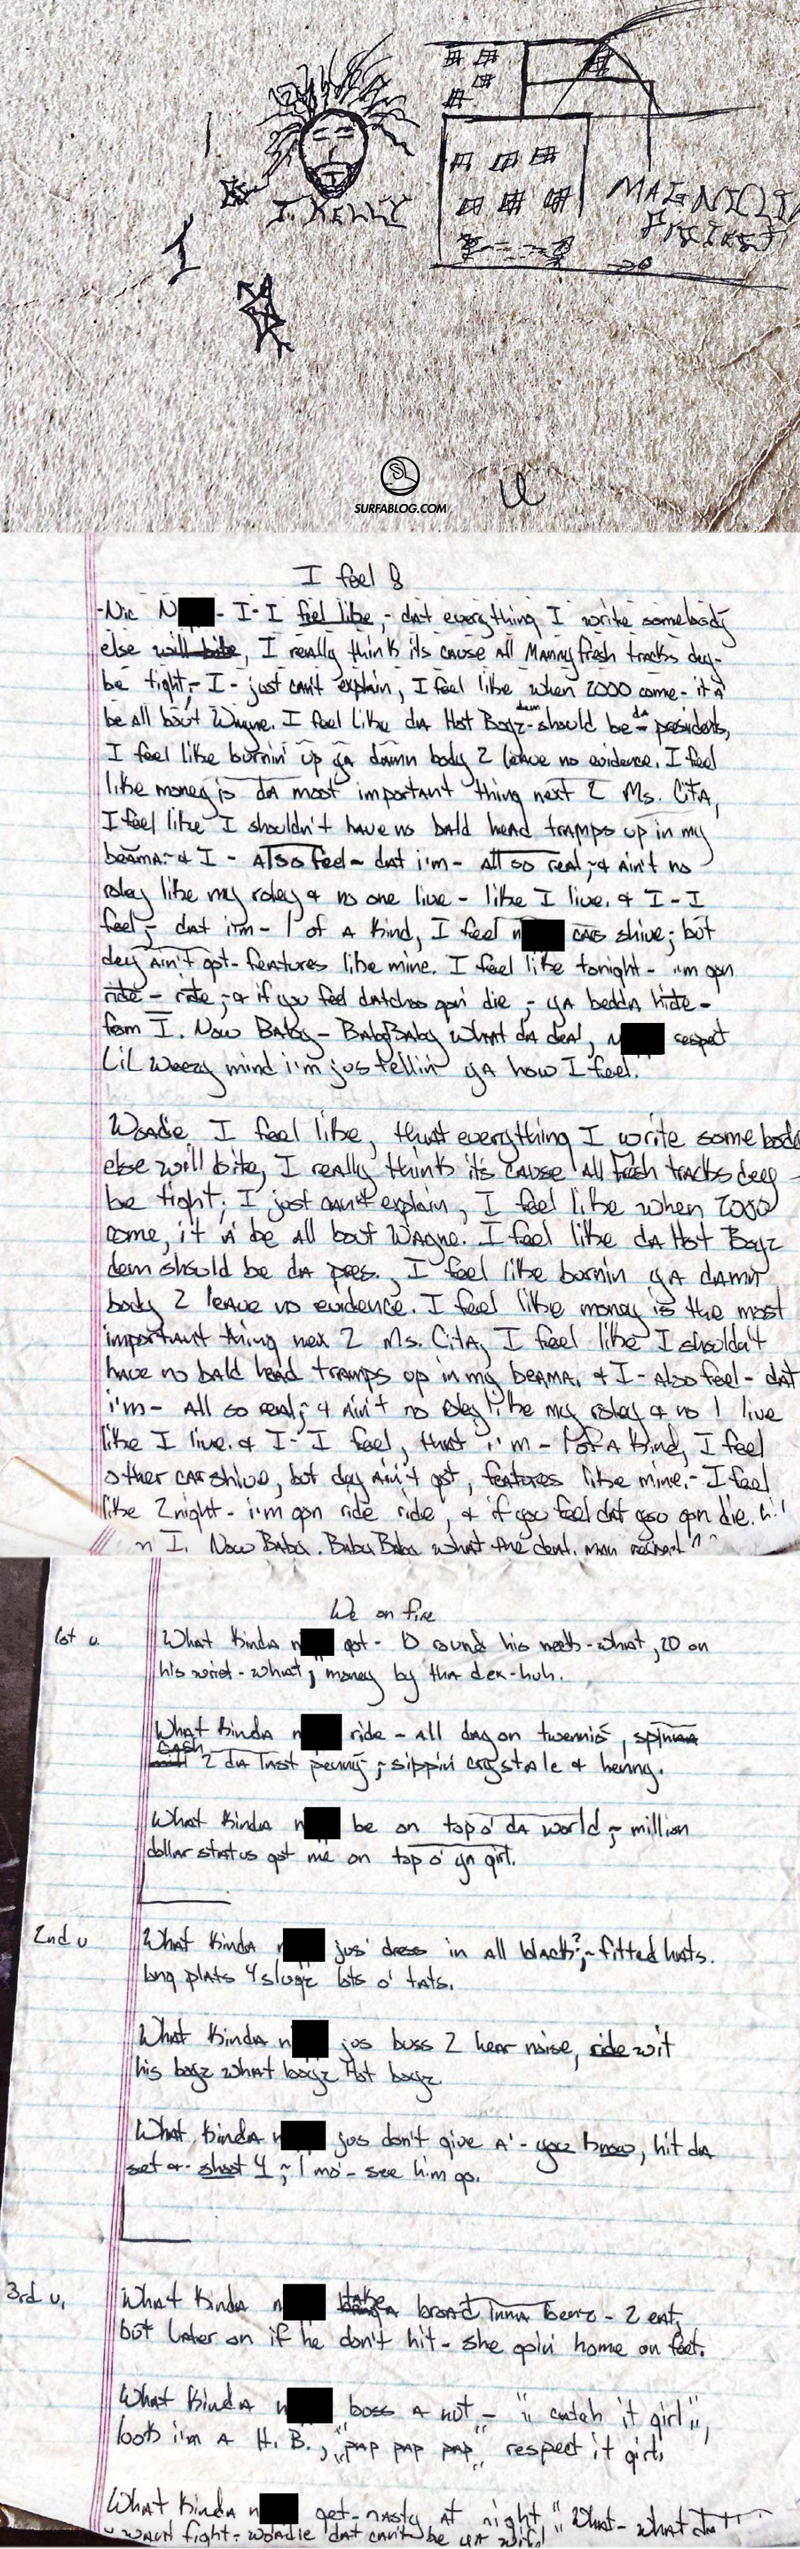 I
J. KELLY
MAGNOLIA
PROJECT
SURFABLOG.COM
I feel
-Nic N - I-I feel like,- dat everything I write somebody
else will bite, I really think its cause all Manny fresh tracks dey-
be tight,- I - just can't explain, I feel like when 2000 come - it a
be all bout Wayne. I feel like da Hot Boyz dem should be da presidents,
I feel like burnin' up ya damn body 2 leave no evidence. I feel
like money is da most important thing next 2 Ms. Cita,
I feel like I shouldn't have no bald head tramps up in my
beama.- & I - Also feel - dat i'm - all so real,- & ain't no
roley like my roley & no one live - like I live. & I-I
feel,- dat i'm - 1 of a kind, I feel n can shine; but
dey ain't got - features like mine. I feel like tonight - i'm gon
ride - ride,- & if you feel datchoo gon' die,- ya bedda hide -
from I. Now Baby - Baby Baby what da deal, N respect
Lil Weezy mind i'm jus tellin' ya how I feel.
Woadie I feel like, that everything I write somebody
else will bite, I really think its cause all fresh tracks deey -
be tight; I just can't explain, I feel like when 2000
come, it a' be all bout Wayne. I feel like da Hot Boyz
dem should be da pres., I feel like burnin ya damn
body 2 leave no evidence. I feel like money is the most
important thing nex 2 Ms. Cita, I feel like I shouldn't
have no bald head tramps up in my beama. & I - also feel - dat
i'm - all so real,- & ain't no roley like my roley & no 1 live
like I live. & I-I feel, that i'm - 1 of a kind, I feel
other can shine, but dey ain't got, features like mine.- I feel
like 2night - i'm gon ride ride, & if you feel dat you gon die.
I. Now Baby. Baby Baby what the deal. man respect
We on fire
1st v.
What kinda n got - 10 round his neck - what, 20 on
his wrist - what; money by tha dex - huh.
What kinda n ride - all day on twennis, spinna
cash 2 da last penny,- sippin' crystale & henny.
What kinda n be on top o' da world,- million
dollar status got me on top o' ya girl.
2nd v
What kinda n jus' dress in all black?,- fitted hats.
long plats 4 slugz lots o' tats.
What kinda n jus buss 2 hear noise, ride wit
his boyz what boyz Hot boyz.
What kinda n jus don't give a' - you know, hit da
set & - shoot 4,- 1 mo' - see him go.
3rd v.
What kinda n take a broad inna benz - 2 eat,
but later on if he don't hit - she goin' home on feet.
What kinda n boss a nut - "catch it girl",
look i'm a H.B., "pap pap pap" respect it girl.
What kinda n get - nasty at night, "What - what
want fight - woadie dat can't be ya wife